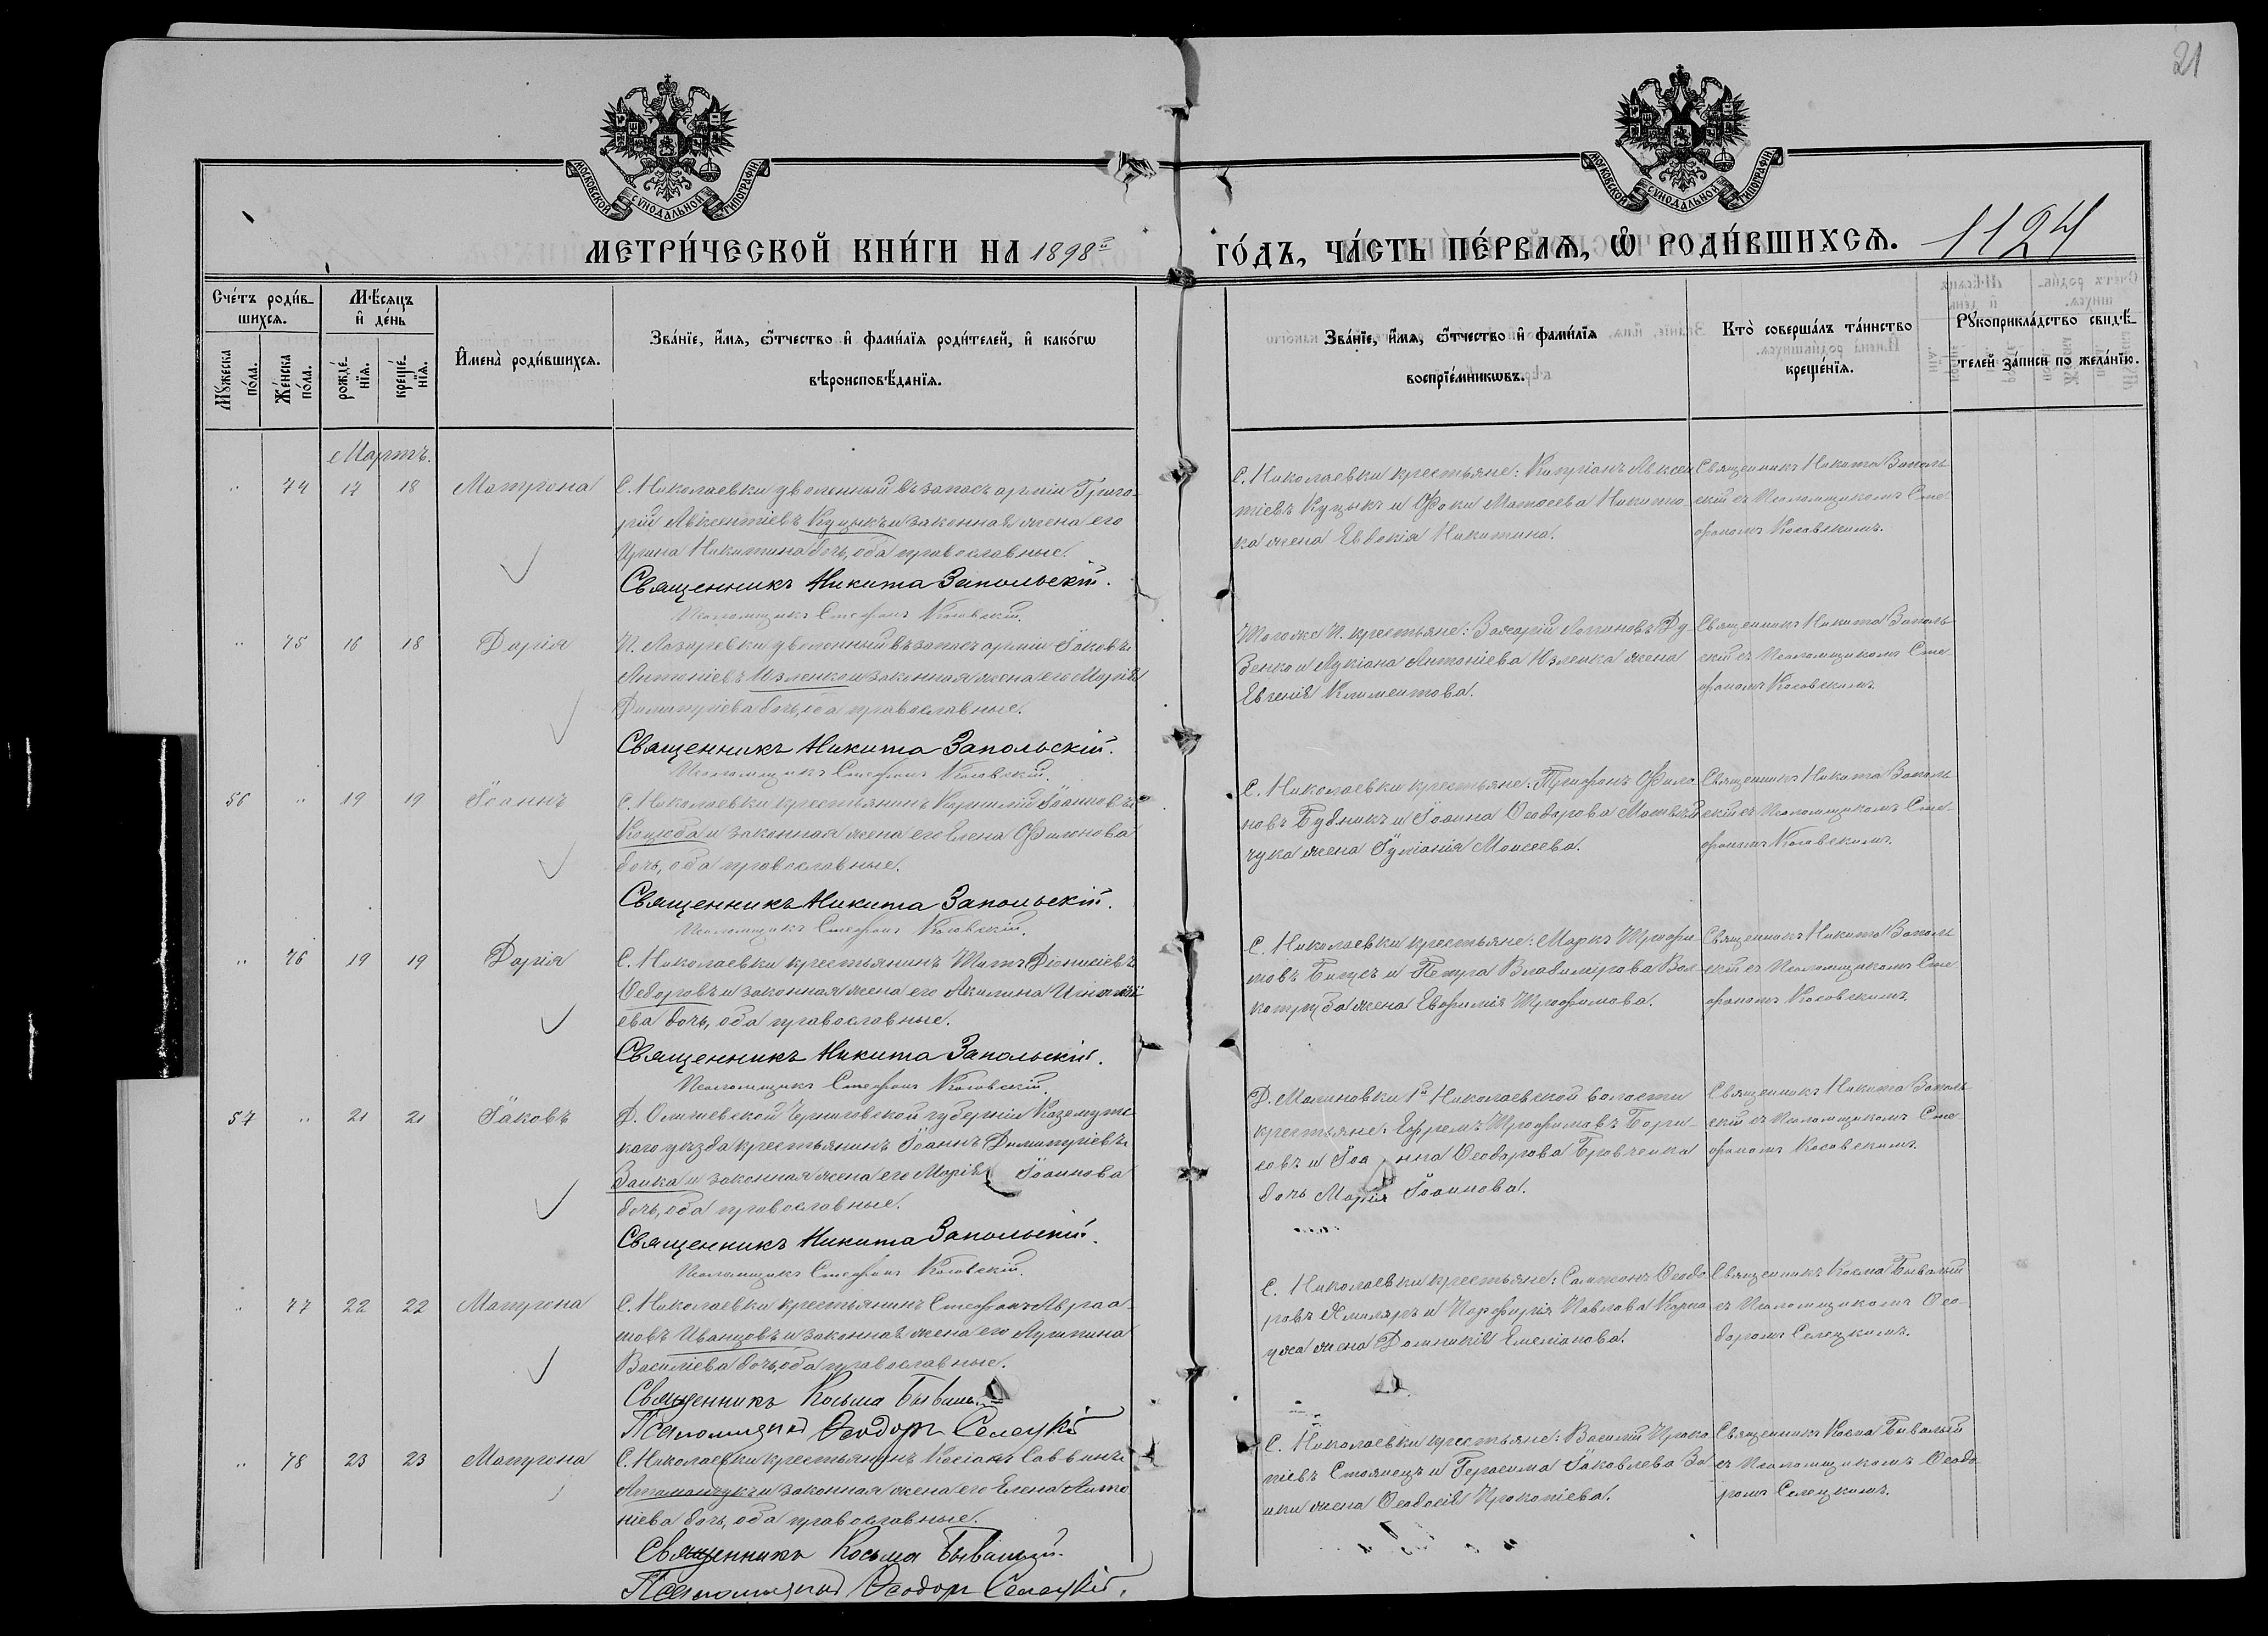 21
МОСКОВСКОЙ СѴНОДАЛЬНОЙ ТИПОГРАФІИ
МОСКОВСКОЙ СѴНОДАЛЬНОЙ ТИПОГРАФІИ
МЕТРИ́ЧЕСКОЙ КНИ́ГИ НА 1898й
ГО́ДЪ, ЧА́СТЬ ПЕ́РВАѦ, Ѽ РОДИ́ВШИХСѦ. 1124
Сче́тъ роди́в-
шихсѧ.
Мꙋ́жеска по́ла.
Же́нска по́ла.
Мѣ́сѧцъ и҆ де́нь
рожде́-нїѧ.
креще́-нїѧ.
И҆мена̀ роди́вшихсѧ.
Зва́нїе, и҆́мѧ, ѻ҆́тчество и҆ фами́лїѧ роди́телей, и҆ како́гѡ
вѣроисповѣ́данїѧ.
Зва́нїе, и҆́мѧ, ѻ҆́тчество и҆ фами́лїѧ
воспрїе́мникѡвъ.
Кто̀ соверша́лъ та́инство
креще́нїѧ.
Рꙋкоприкла́дство свидѣ́-
телей за́писи по жела́нїю.
Мартъ.
„ 74 17 18 Матрона
С. Николаевки уволенный въ запасъ арміи Григо-
рій Авксентіевъ Куцыкъ и законная жена его
Ирина Никитина дочь, оба православные.
Священникъ Никита Запольскій.
Псаломщикъ Стефанъ Косовскій.
С. Николаевки крестьяне: Кипріанъ Авксен
тіевъ Куцыкъ и Фоки Матѳеева Никито-
ка жена Евдокія Никитина.
Священникъ Никита Заполь
скій съ Псаломщикомъ Сте
фаномъ Косовскимъ.
„ 75 16 18 Дарія
П. Лазаревки уволенный въ запасъ арміи Іаковъ
Антоніевъ Изленко и законная жена его Марія
Димитріева дочь, оба православные.
Священникъ Никита Запольскій.
Псаломщикъ Стефанъ Косовскій.
Того же П. крестьяне: Захарій Логиновъ Ду-
Евгенія Климентова.
Священникъ Никита Заполь
скій съ Псаломщикомъ Сте
фаномъ Косовскимъ.
56 „ 19 19 Іоаннъ
С. Николаевки крестьянинъ Корнилій Іоанновъ
Коцюба и законная жена его Елена Филонова
дочь, оба православные.
Священникъ Никита Запольскій.
Псаломщикъ Стефанъ Косовскій.
С. Николаевки крестьяне: Трифонъ Фило
новъ Будникъ и Іоанна Ѳеодорова Матвѣй
чука жена Іуліанія Моисеева.
Священникъ Никита Заполь
скій съ Псаломщикомъ Сте-
фаномъ Косовскимъ.
„ 76 19 19 Дарія
С. Николаевки крестьянинъ Титъ Діонисіевъ
Ѳедоровъ и законная жена его Акилина Игнаті
ева дочь, оба православные.
Священникъ Никита Запольскій.
Псаломщикъ Стефанъ Косовскій
С. Николаевки крестьяне: Маркъ Трофи
мовъ и Петра Владимірова Вол
котруба жена Евфимія Трофимова.
Священникъ Никита Заполь
скій съ Псаломщикомъ Сте
фаномъ Косовскимъ.
57 „ 21 21 Іаковъ
Д. Черниговской губерніи
каго уѣзда крестьянинъ Іоаннъ Димитріевъ
Заика и законная жена его Марія Іоаннова
дочь, оба православные.
Священникъ Никита Запольскій.
Псаломщикъ Стефанъ Косовскій.
Д. Малиновки 1й Николаевской волости
крестьяне: Ефремъ Трофимовъ Бори-
совъ и Іоанна Ѳеодорова Бровченка
дочь Марія Іоаннова.
Священникъ Никита Заполь
скій съ Псаломщикомъ Сте
фаномъ Косовскимъ.
„ 77 22 22 Матрона
С. Николаевки крестьянинъ Стефанъ Авраа-
мовъ Иванцовъ и законная жена его Агрипина
Василіева дочь, оба православные.
Священникъ Косьма Бывалый
Псаломщикъ Ѳеодоръ Селецкій
С. Николаевки крестьяне: Самсонъ Ѳеодо
ровъ Хмиляръ и Порфирія Павлова
жена Домникія Емеліанова.
Священникъ Косма Бывалый
съ Псаломщикомъ Ѳео-
доромъ Селецкимъ.
„ 78 23 23 Матрона
С. Николаевки крестьянинъ Касіанъ Саввинъ
Атаманчукъ и законная жена его Елена Анто
ніева дочь, оба православные.
Священникъ Косьма Бывалый.
Псаломщикъ Ѳеодоръ Селецкій.
С. Николаевки крестьяне: Василій Проко
піевъ Стоянецъ и Герасима Іаковлева За
ики жена Ѳеодосія Прокопіева.
Священникъ Косма Бывалый
съ Псаломщикомъ Ѳеодо
ромъ Селецкимъ.